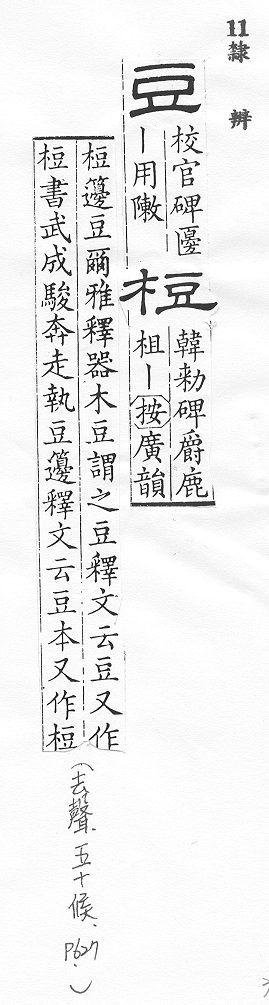 11
隸辨
豆
校官碑㥷
丨用陳
梪
韓勑碑爵鹿
柤丨按廣韻
梪籩豆爾雅釋器木豆謂之豆釋文云豆又作
梪書武成駿奔走執豆籩釋文云豆本又作梪
(去聲.五十候.P627.)